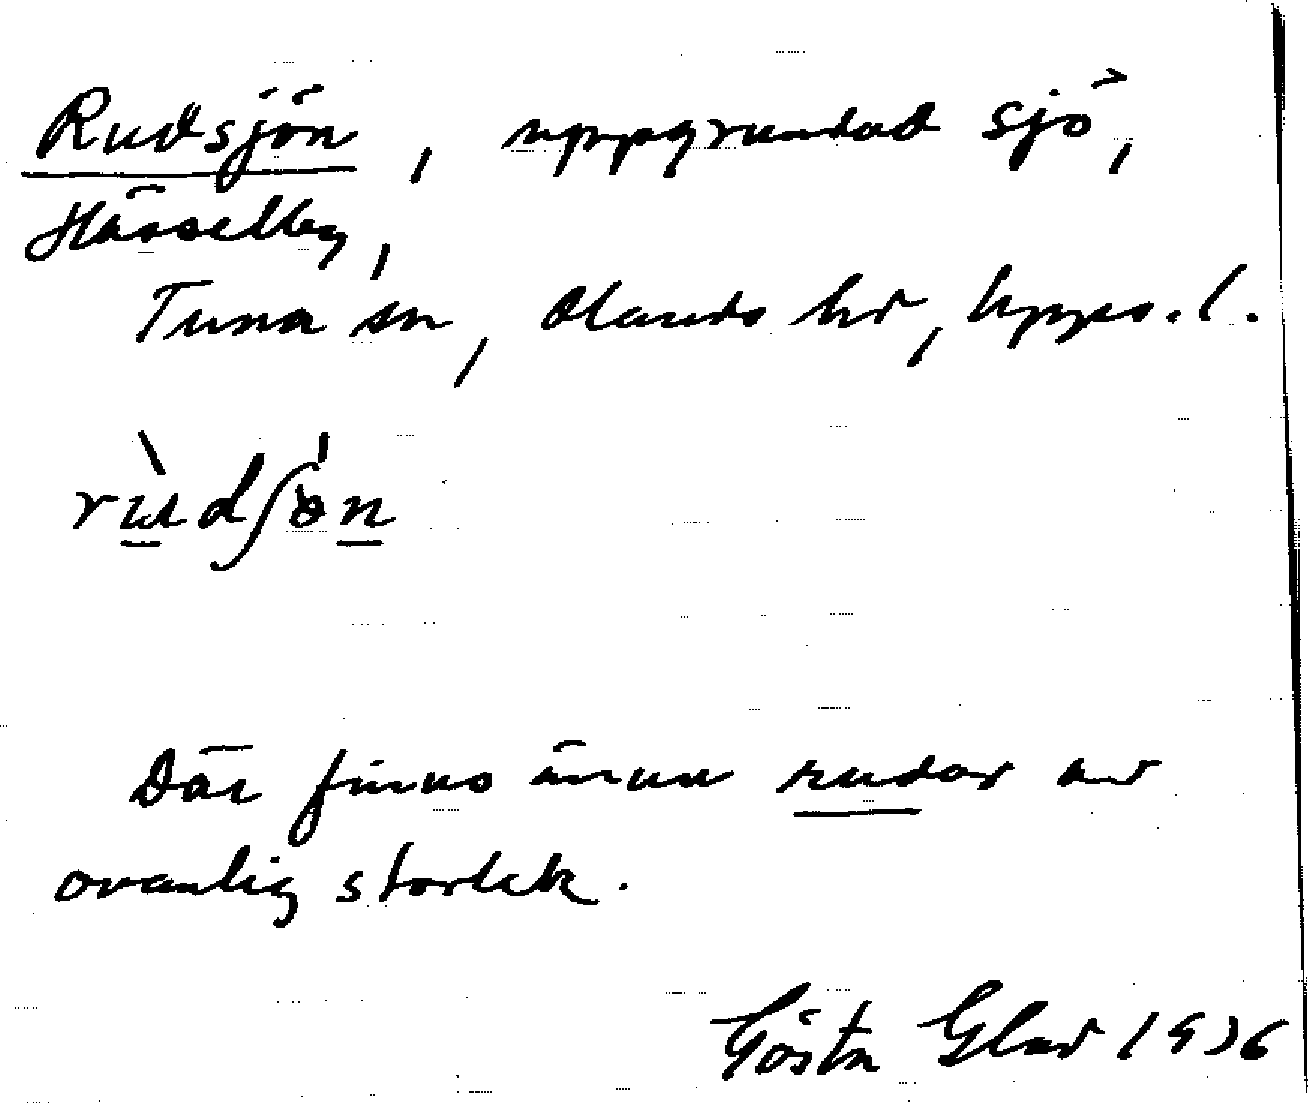 Rudsjön, uppgrundad sjö,
Hässelby,
Tuna sn, Olands hd, Upps. l.
rùdʃø̀n
Där finns ännu rudor av
ovanlig storlek.
Gösta Glad 1936